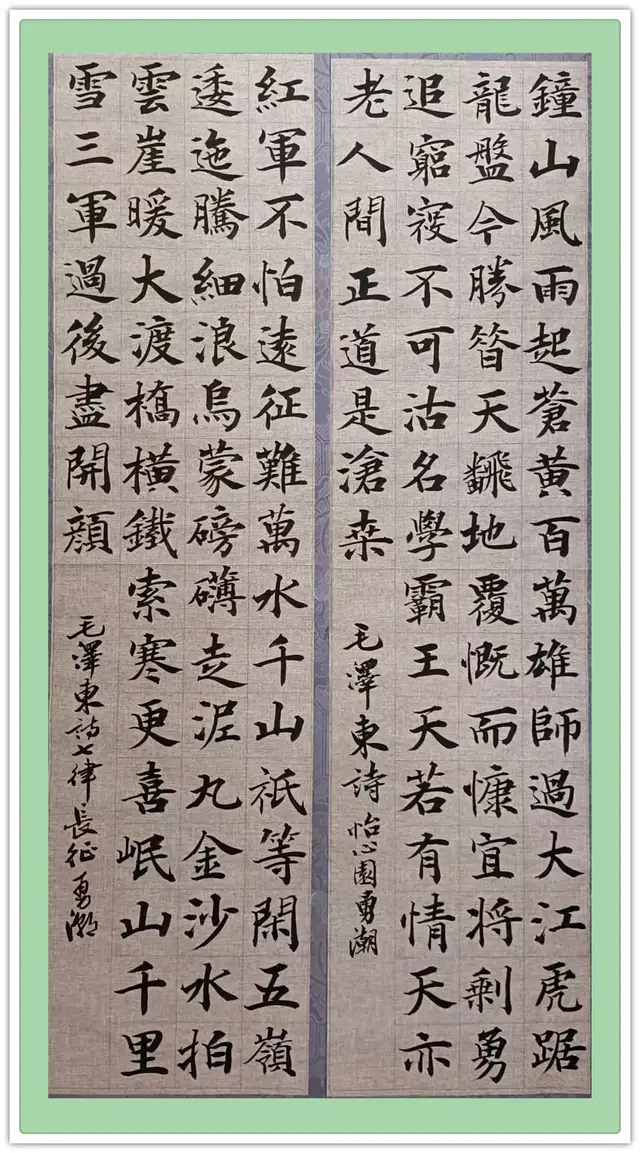 鐘山風雨起蒼黃百萬雄師過大江虎踞
龍盤今勝昔天飜地覆慨而慷宜將剩勇
追窮寇不可沽名學霸王天若有情天亦
老人間正道是滄桒
毛澤東詩怡心園勇潮
紅軍不怕遠征難萬水千山祇等閑五嶺
逶迤騰細浪烏蒙磅礴走泥丸金沙水拍
雲崖暖大渡橋橫鐵索寒更喜岷山千里
雪三軍過後盡開顏
毛澤東詩七律長征勇潮